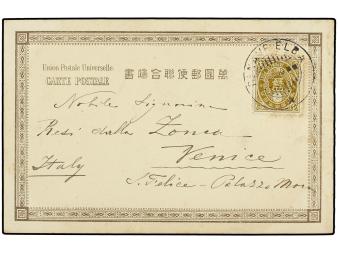 Union Postale Universelle
CARTE POSTALE 書端合聯便郵國萬
Nobile Signorina
Resi dalla Zonca
Venice
Italy
S. Felice - Palazzo